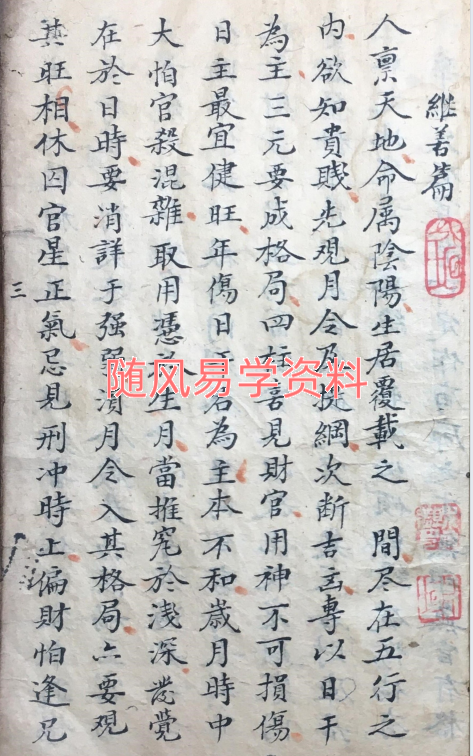 继善篇
人禀天地命属陰陽生居覆載之 間尽在五行之
内欲知貴賤先观月令及提綱次断吉凶專以日干
為主三元要成格局四柱喜見財官用神不可損傷
日主最宜健旺年傷日干名為主本不和歳月時中
大怕官殺混雜取用憑生月當推究於浅深發覚
在於日時要消詳于强弱須月令入其格局亦要观
其旺相休囚官星正氣忌見刑冲時上偏財怕逢兄
三
随风易学资料